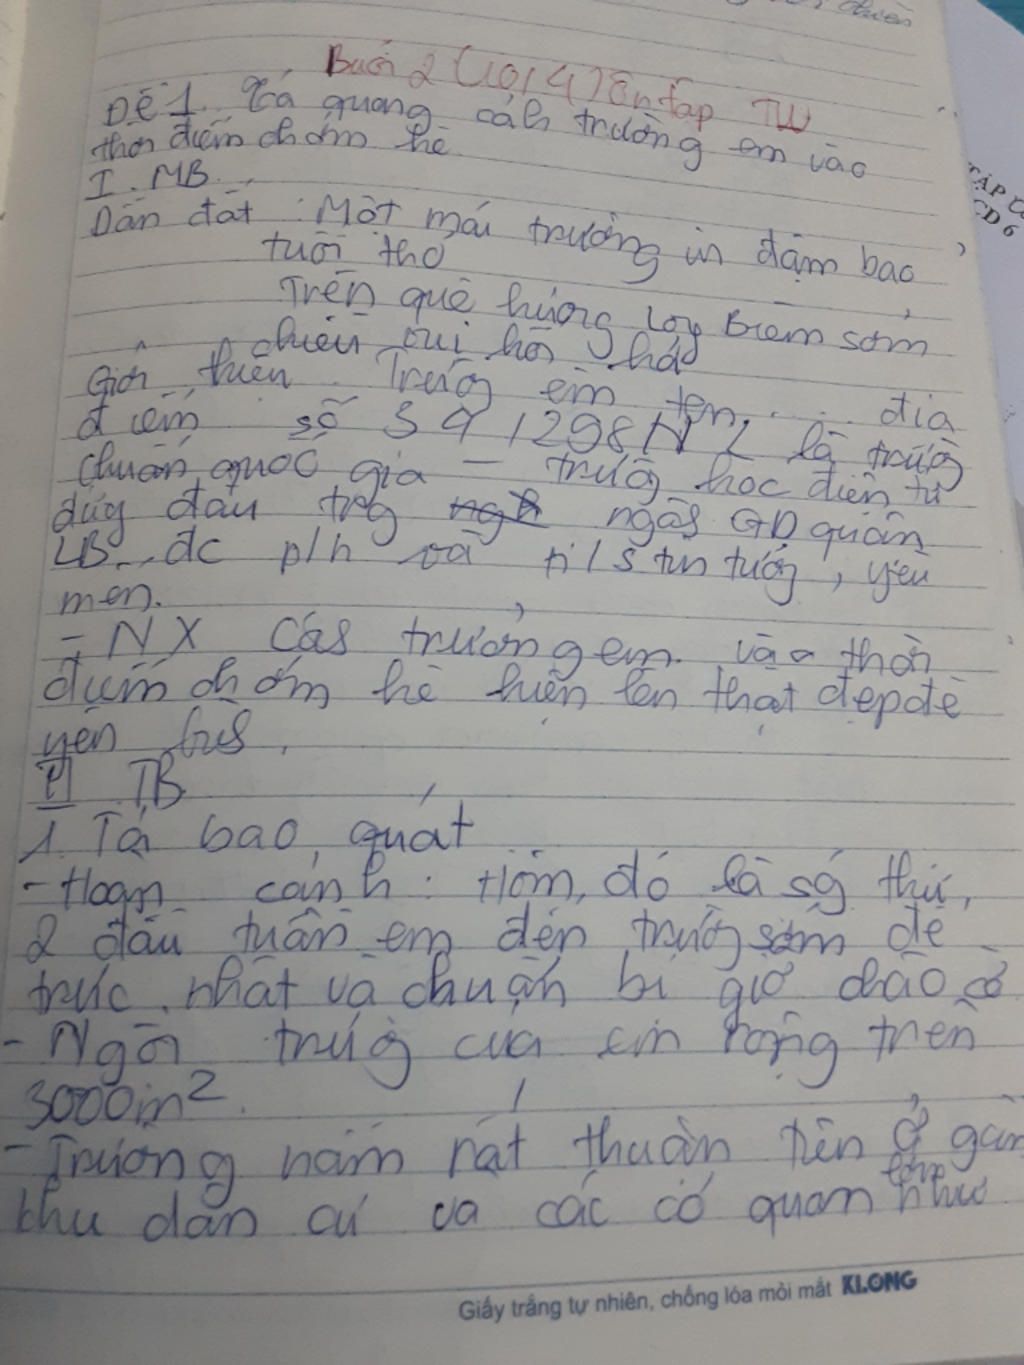 Buổi 2 (10/4) Ôn tập TLV
Đề 1. Tả quang cảnh trường em vào
thời điểm chớm hè.
I. MB.
Dẫn dắt : Một mái trường in đậm bao
tuổi thơ
Trên quê hương Long Biên sớm
chiều vui hớn hở
Giới thiệu Trường em tên ... địa
điểm số
là trường
chuẩn quốc gia - trường học điện tử
đứng đầu trg ngàh GD quận
LB. đc p/h và h/s tin tưởng, yêu
mến.
- NX Cảh trường em vào thời
điểm chớm hè hiện lên thật đẹp đẽ
yên
II TB
1. Tả bao quát
- Hoàn cảnh : Hôm đó là ság thứ
2 đầu tuần em đến trường sớm để
trực nhật và chuẩn bị giờ chào cờ
- Ngôi trườg của em rộng trên
3000m².
- Trường nằm rất thuận tiện ở gần
khu dân cư và các cơ quan lớn như
Giấy trắng tự nhiên, chống lóa mỏi mắt KLONG
TẬP
CD 6